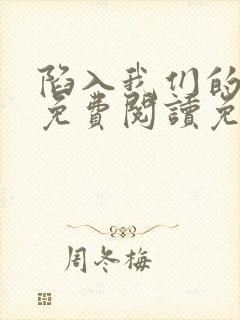 陷入我们的
免費閱讀免
周冬梅